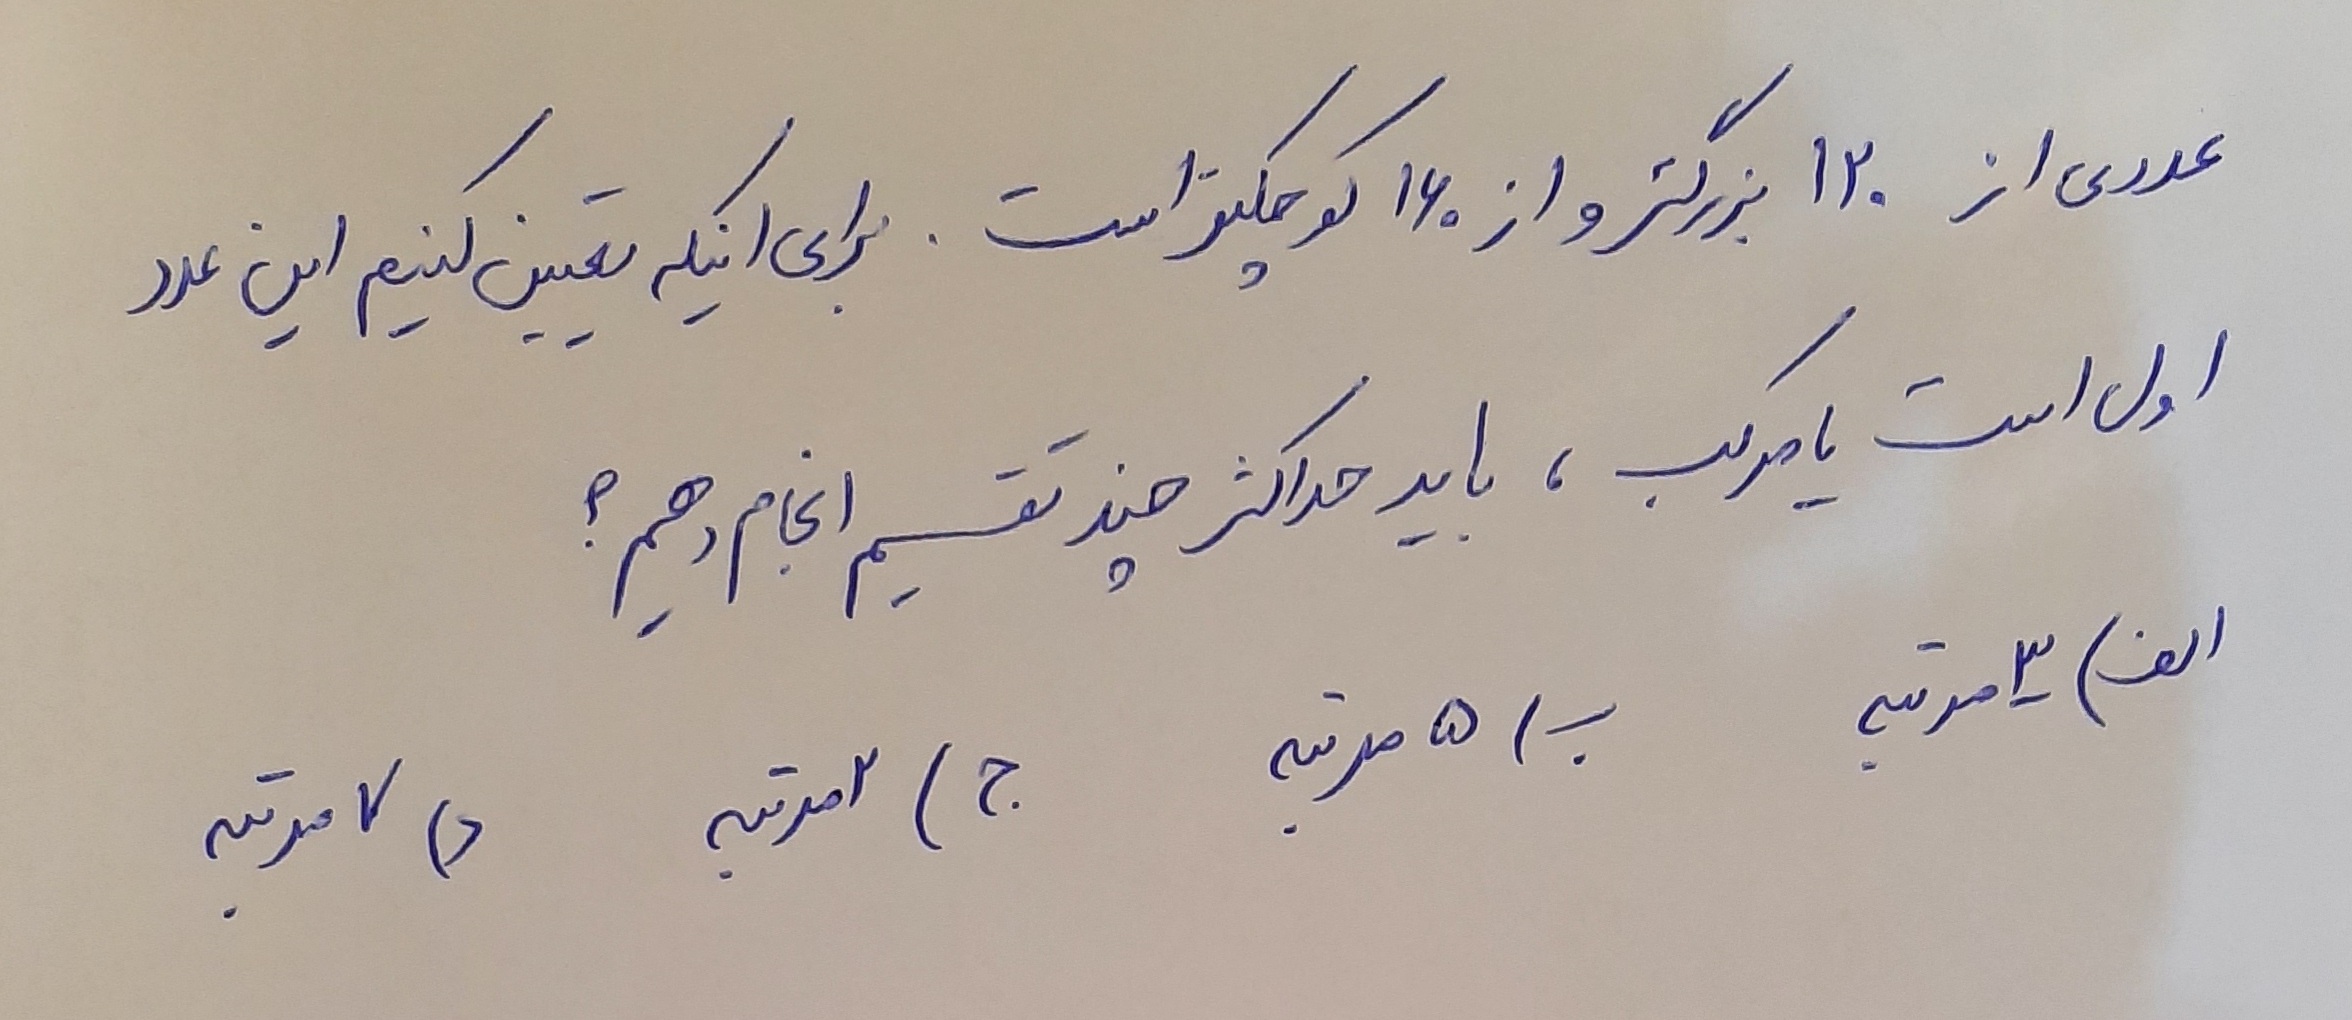 عددی از ۱۲۰ بزرگتر و از ۱۶۰ کوچکتر است. برای اینکه تعیین کنیم این عدد
اول است یا مرکب، باید حداکثر چند تقسیم انجام دهیم؟
الف) ۳ مرتبه ب) ۵ مرتبه ج) ۲ مرتبه د) ۷ مرتبه